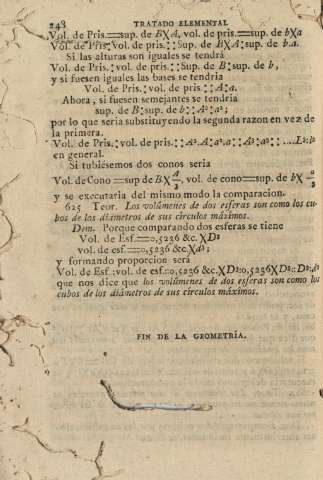 248 TRATADO ELEMENTAL
Vol. de Pris.=sup. de BXA, vol. de pris.=sup. de bXa
Vol. de Pris:vol. de pris::Sup. de BXA:sup. de b.a.
Si las alturas son iguales se tendrá
Vol. de Pris.:vol. de pris::Sup. de B:sup. de b,
y si fuesen iguales las bases se tendria
Vol. de Pris:vol. de pris::A:a.
Ahora, si fuesen semejantes se tendria
sup. de B:sup. de b::A²:a²;
por lo que seria substituyendo la segunda razon en vez de
la primera.
Vol. de Pris:vol. de pris::A².A:a².a::A³:a³::....L³:l³
en general.
Si tubiésemos dos conos seria
Vol. de Cono=sup de BX A/3, vol. de cono=sup. de bX a/3
y se executaria del mismo modo la comparacion.
625 Teor. Los volúmenes de dos esferas son como los cu-
bos de los diámetros de sus círculos máximos.
Dem. Porque comparando dos esferas se tiene
Vol. de Esf.=0,5236 &c. XD³
vol. de esf.=0,5236 &c. Xd³;
y formando proporcion será
Vol. de Esf.:vol. de esf::0,5236 &c.XD³:0,5236Xd³::D³:d³,
que nos dice que los volúmenes de dos esferas son como los
cubos de los diámetros de sus círculos máximos.
FIN DE LA GEOMETRÍA.